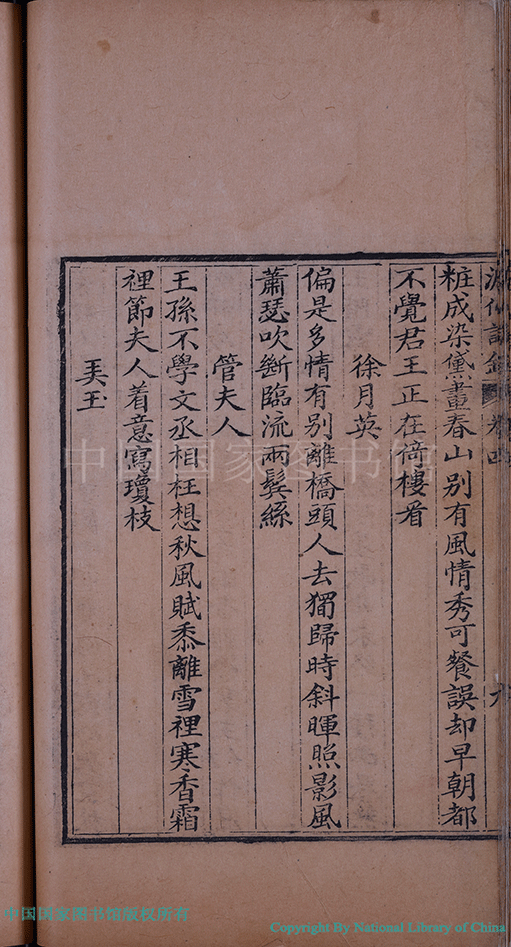 粧成染黛畫春山别有風情秀可餐誤却早朝都
不覺君王正在倚樓看
徐月英
偏是多情有别離橋頭人去獨歸時斜暉照影風
蕭瑟吹斷臨流兩鬂絲
管夫人
王孫不學文丞相枉想秋風賦黍離雪裡寒香霜
裡節夫人着意寫瓊枝
美玉
中国国家图书馆
中国国家图书馆版权所有
Copyright By National Library of China